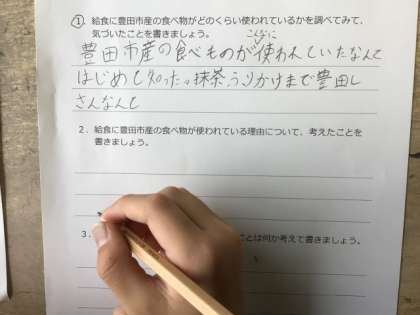 ①．給食に豊田市産の食べ物がどのくらい使われているかを調べてみて、
気づいたことを書きましょう。
こんなに
豊田市産の食べものが使われていたなんて
はじめて知った。抹茶ふりかけまで豊田し
さんなんて
２．給食に豊田市産の食べ物が使われている理由について、考えたことを
書きましょう。
３．
ことは何か考えて書きましょう。